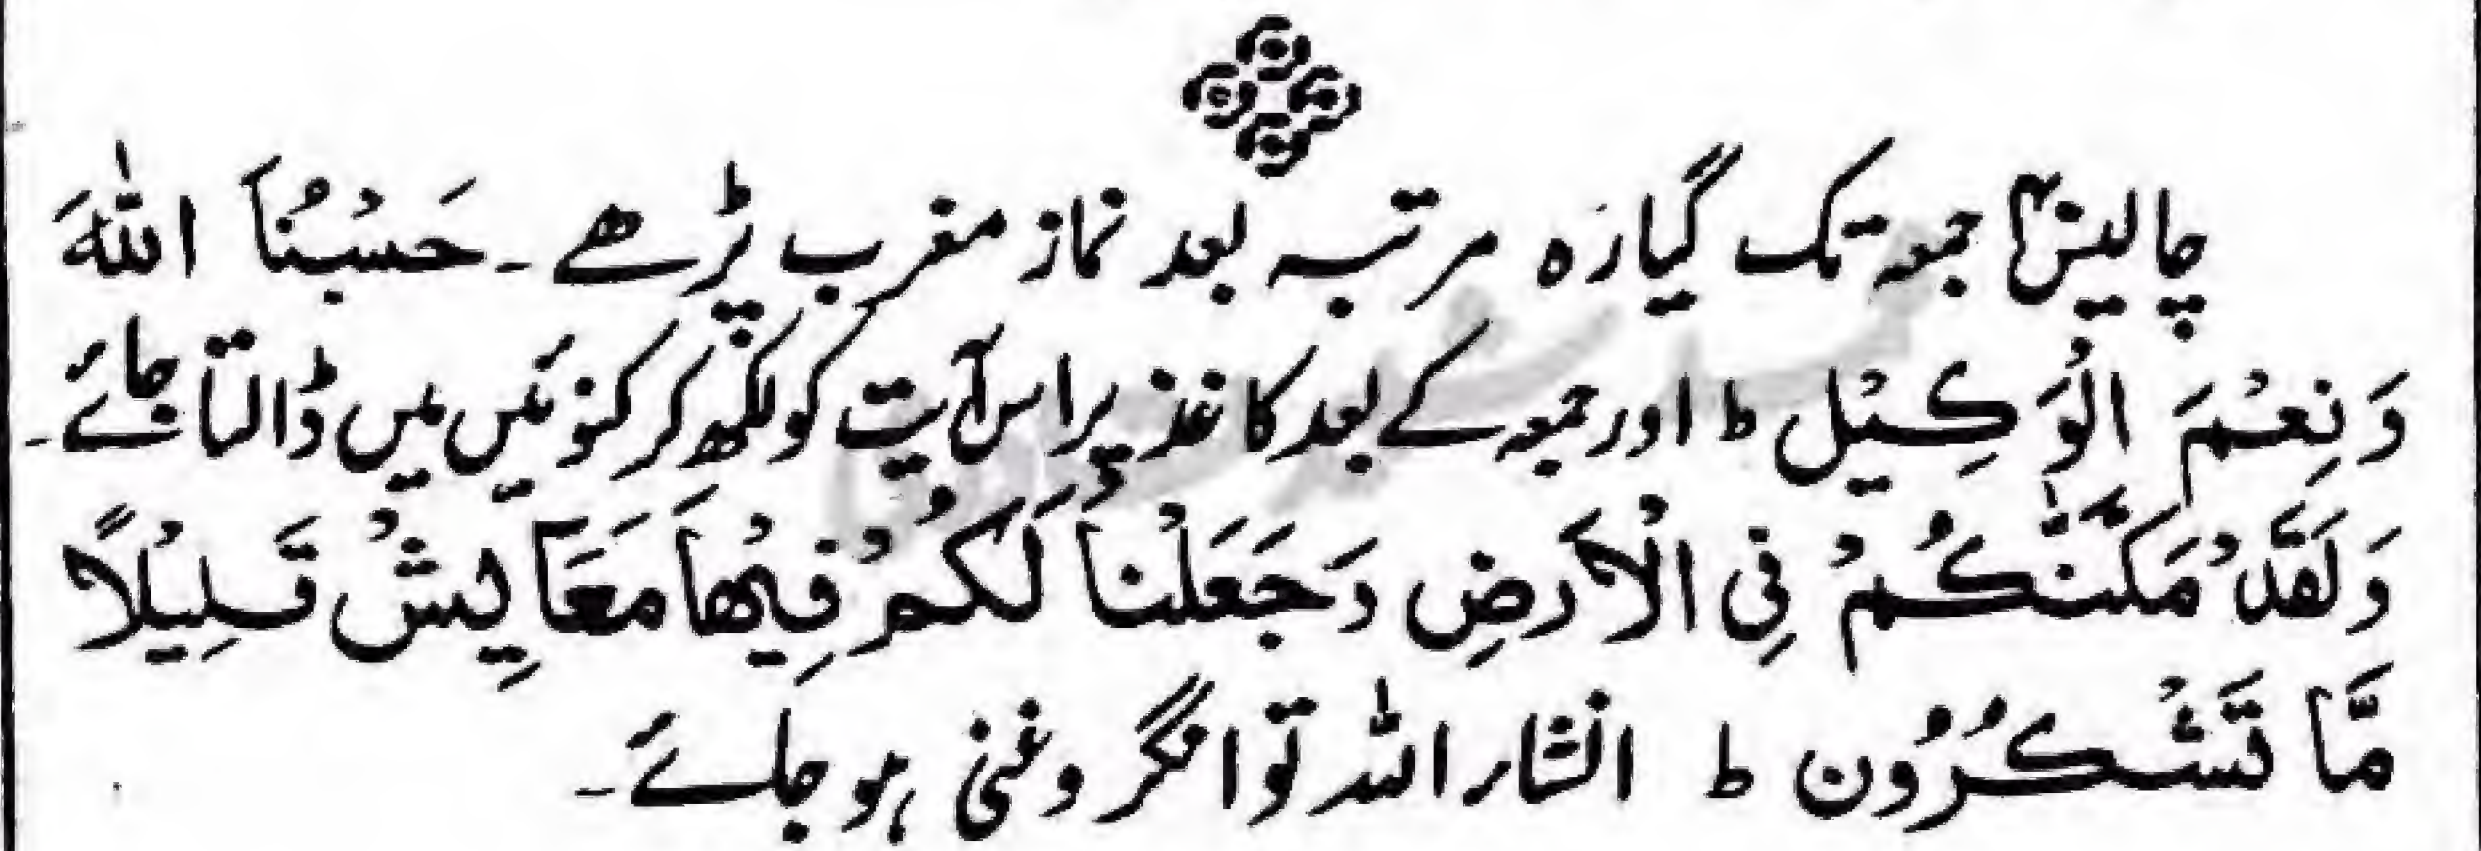 چالیس۴۰ جمعہ تک گیارہ مرتبہ بعد نماز مغرب پڑھے ۔ حَسْبُنَا اللّٰهَ
وَنِعْمَ الْوَكِيْل ط اور جمعہ کے بعد کاغذ پر اس آیت کو لکھ کر کنوئیں میں ڈالتا جائے ۔
وَلَقَدْ مَكَّنّٰكُمْ فِی الْاَرْضِ وَجَعَلْنَا لَكُمْ فِيْهَا مَعَايِشْ قَلِيْلًا
مَّا تَشْكُرُوْن ط انشاء اللہ توامگر وغنی ہو جائے ۔